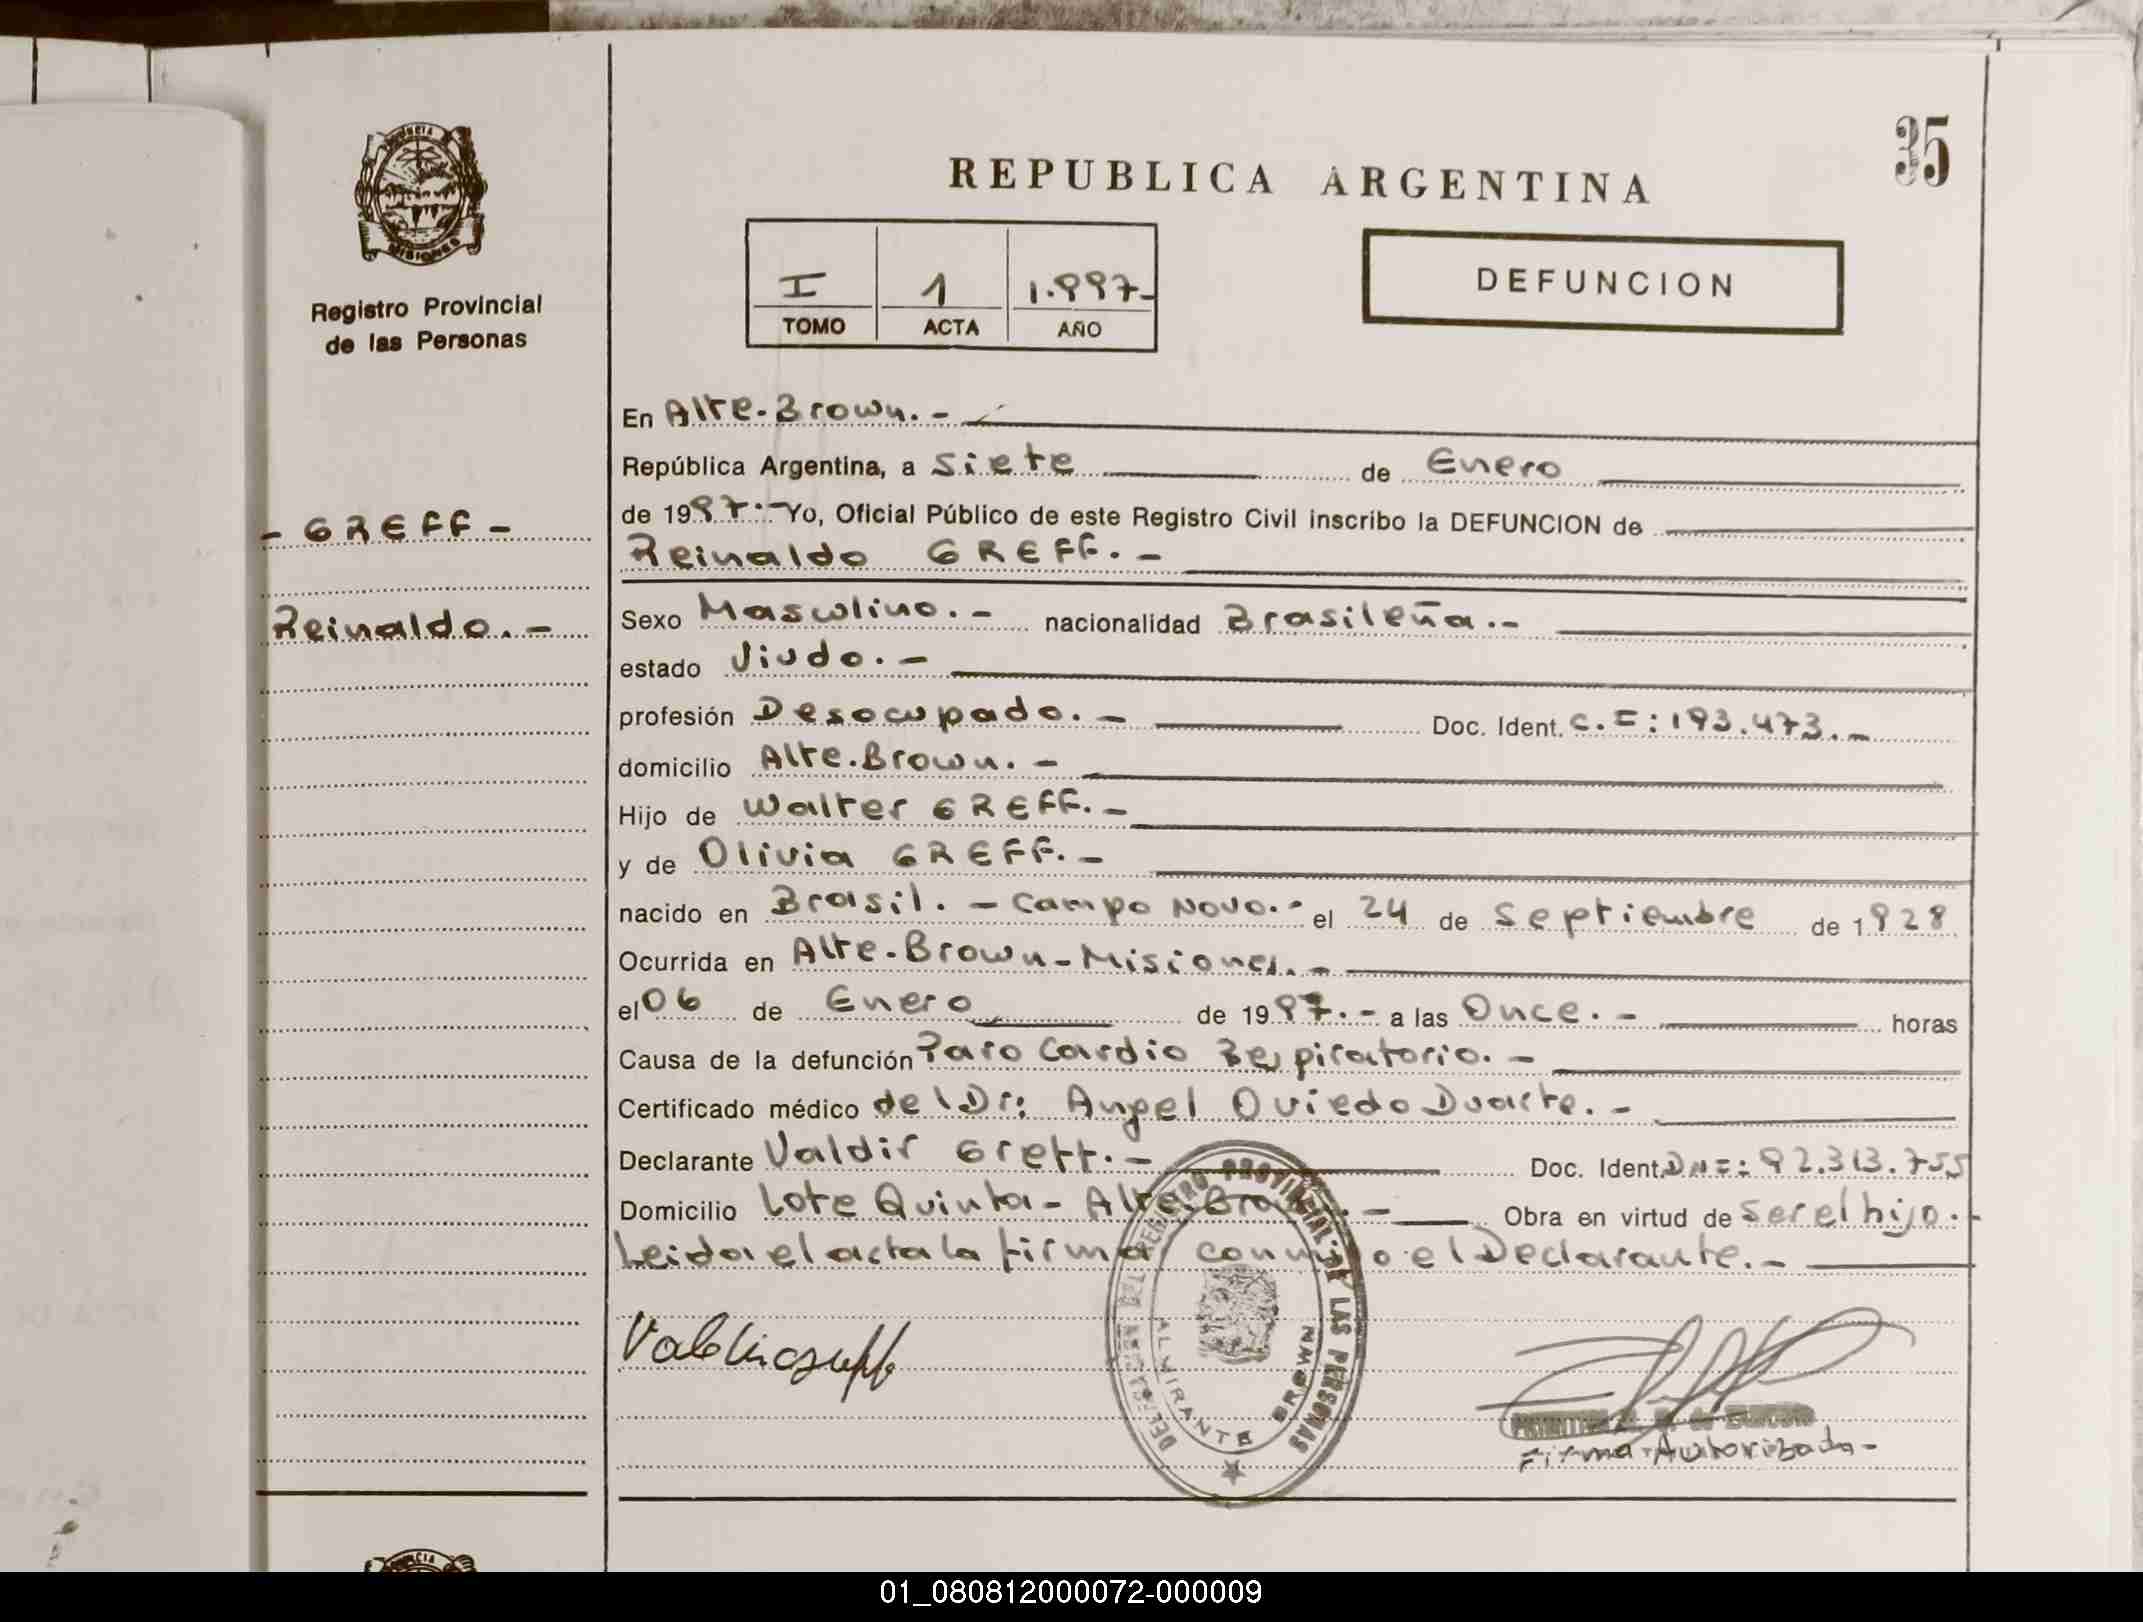 35
REPUBLICA ARGENTINA
PROVINCIA
MISIONES
Registro Provincial
de las Personas
I 1 1.997-
TOMO ACTA AÑO
DEFUNCION
- GREFF -
Reinaldo.-
En Alte. Brown.-
República Argentina, a siete de Enero
de 1997.- Yo, Oficial Público de este Registro Civil inscribo la DEFUNCION de
Reinaldo GREFF.-
Sexo Masculino.- nacionalidad Brasileña.-
estado Viudo.-
profesión Desocupado.- Doc. Ident. C.I: 193.473.-
domicilio Alte. Brown.-
Hijo de Walter GREFF.-
y de Olivia GREFF.-
nacido en Brasil.- Campo Novo.- el 24 de Septiembre de 1928
Ocurrida en Alte. Brown - Misiones.-
el 06 de Enero de 1997.- a las Once.- horas
Causa de la defunción Paro Cardio Respiratorio.-
Certificado médico del Dr: Angel Oviedo Duarte.-
Declarante Valdir Greff.- Doc. Ident. DNI: 92.313.755
Domicilio Lote Quinta - Alte. Brown.- Obra en virtud de ser el hijo.-
Leida el acta la firma conmigo el Declarante.-
REGISTRO PROVINCIAL DE LAS PERSONAS
ALMIRANTE BROWN
Firma Autorizada-
01_080812000072-000009